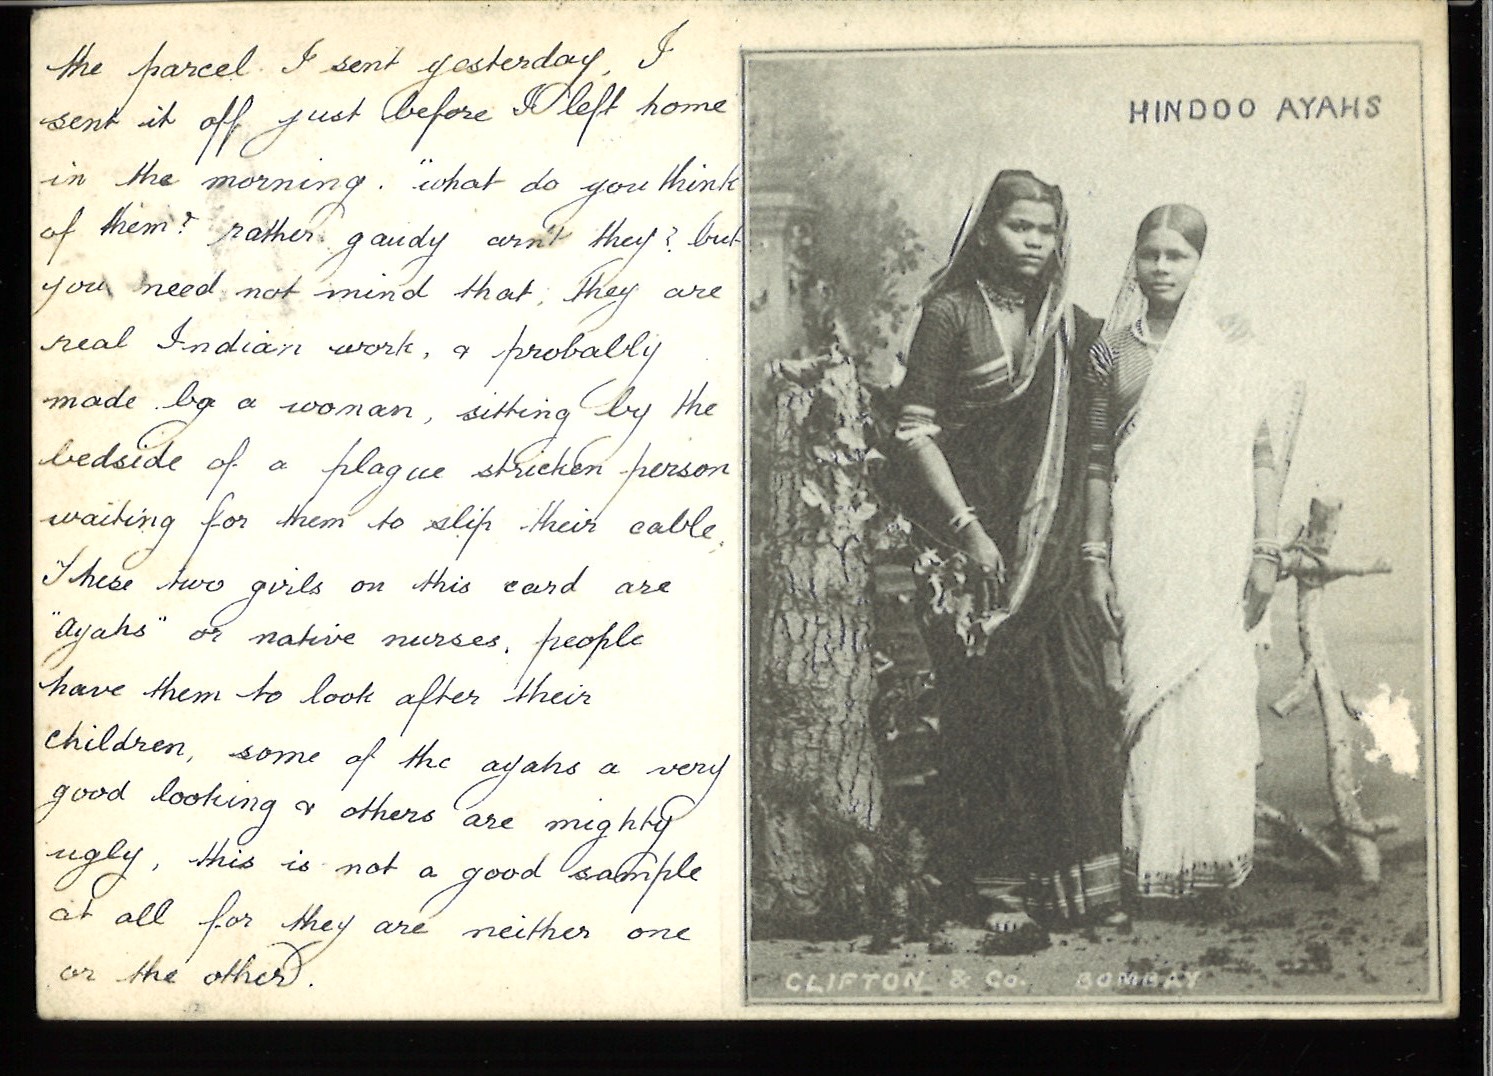 the parcel I sent yesterday, I
sent it off just before I left home
in the morning. "what do you think
of them? rather gaudy arn't they? but
you need not mind that, they are
real Indian work, & probably
made by a woman, sitting by the
bedside of a plague stricken person
waiting for them to slip their cable.
These two girls on this card are
"Ayahs" or native nurses, people
have them to look after their
children, some of the ayahs a very
good looking & others are mighty
ugly, this is not a good sample
at all for they are neither one
or the other.
HINDOO AYAHS
CLIFTON & Co. BOMBAY